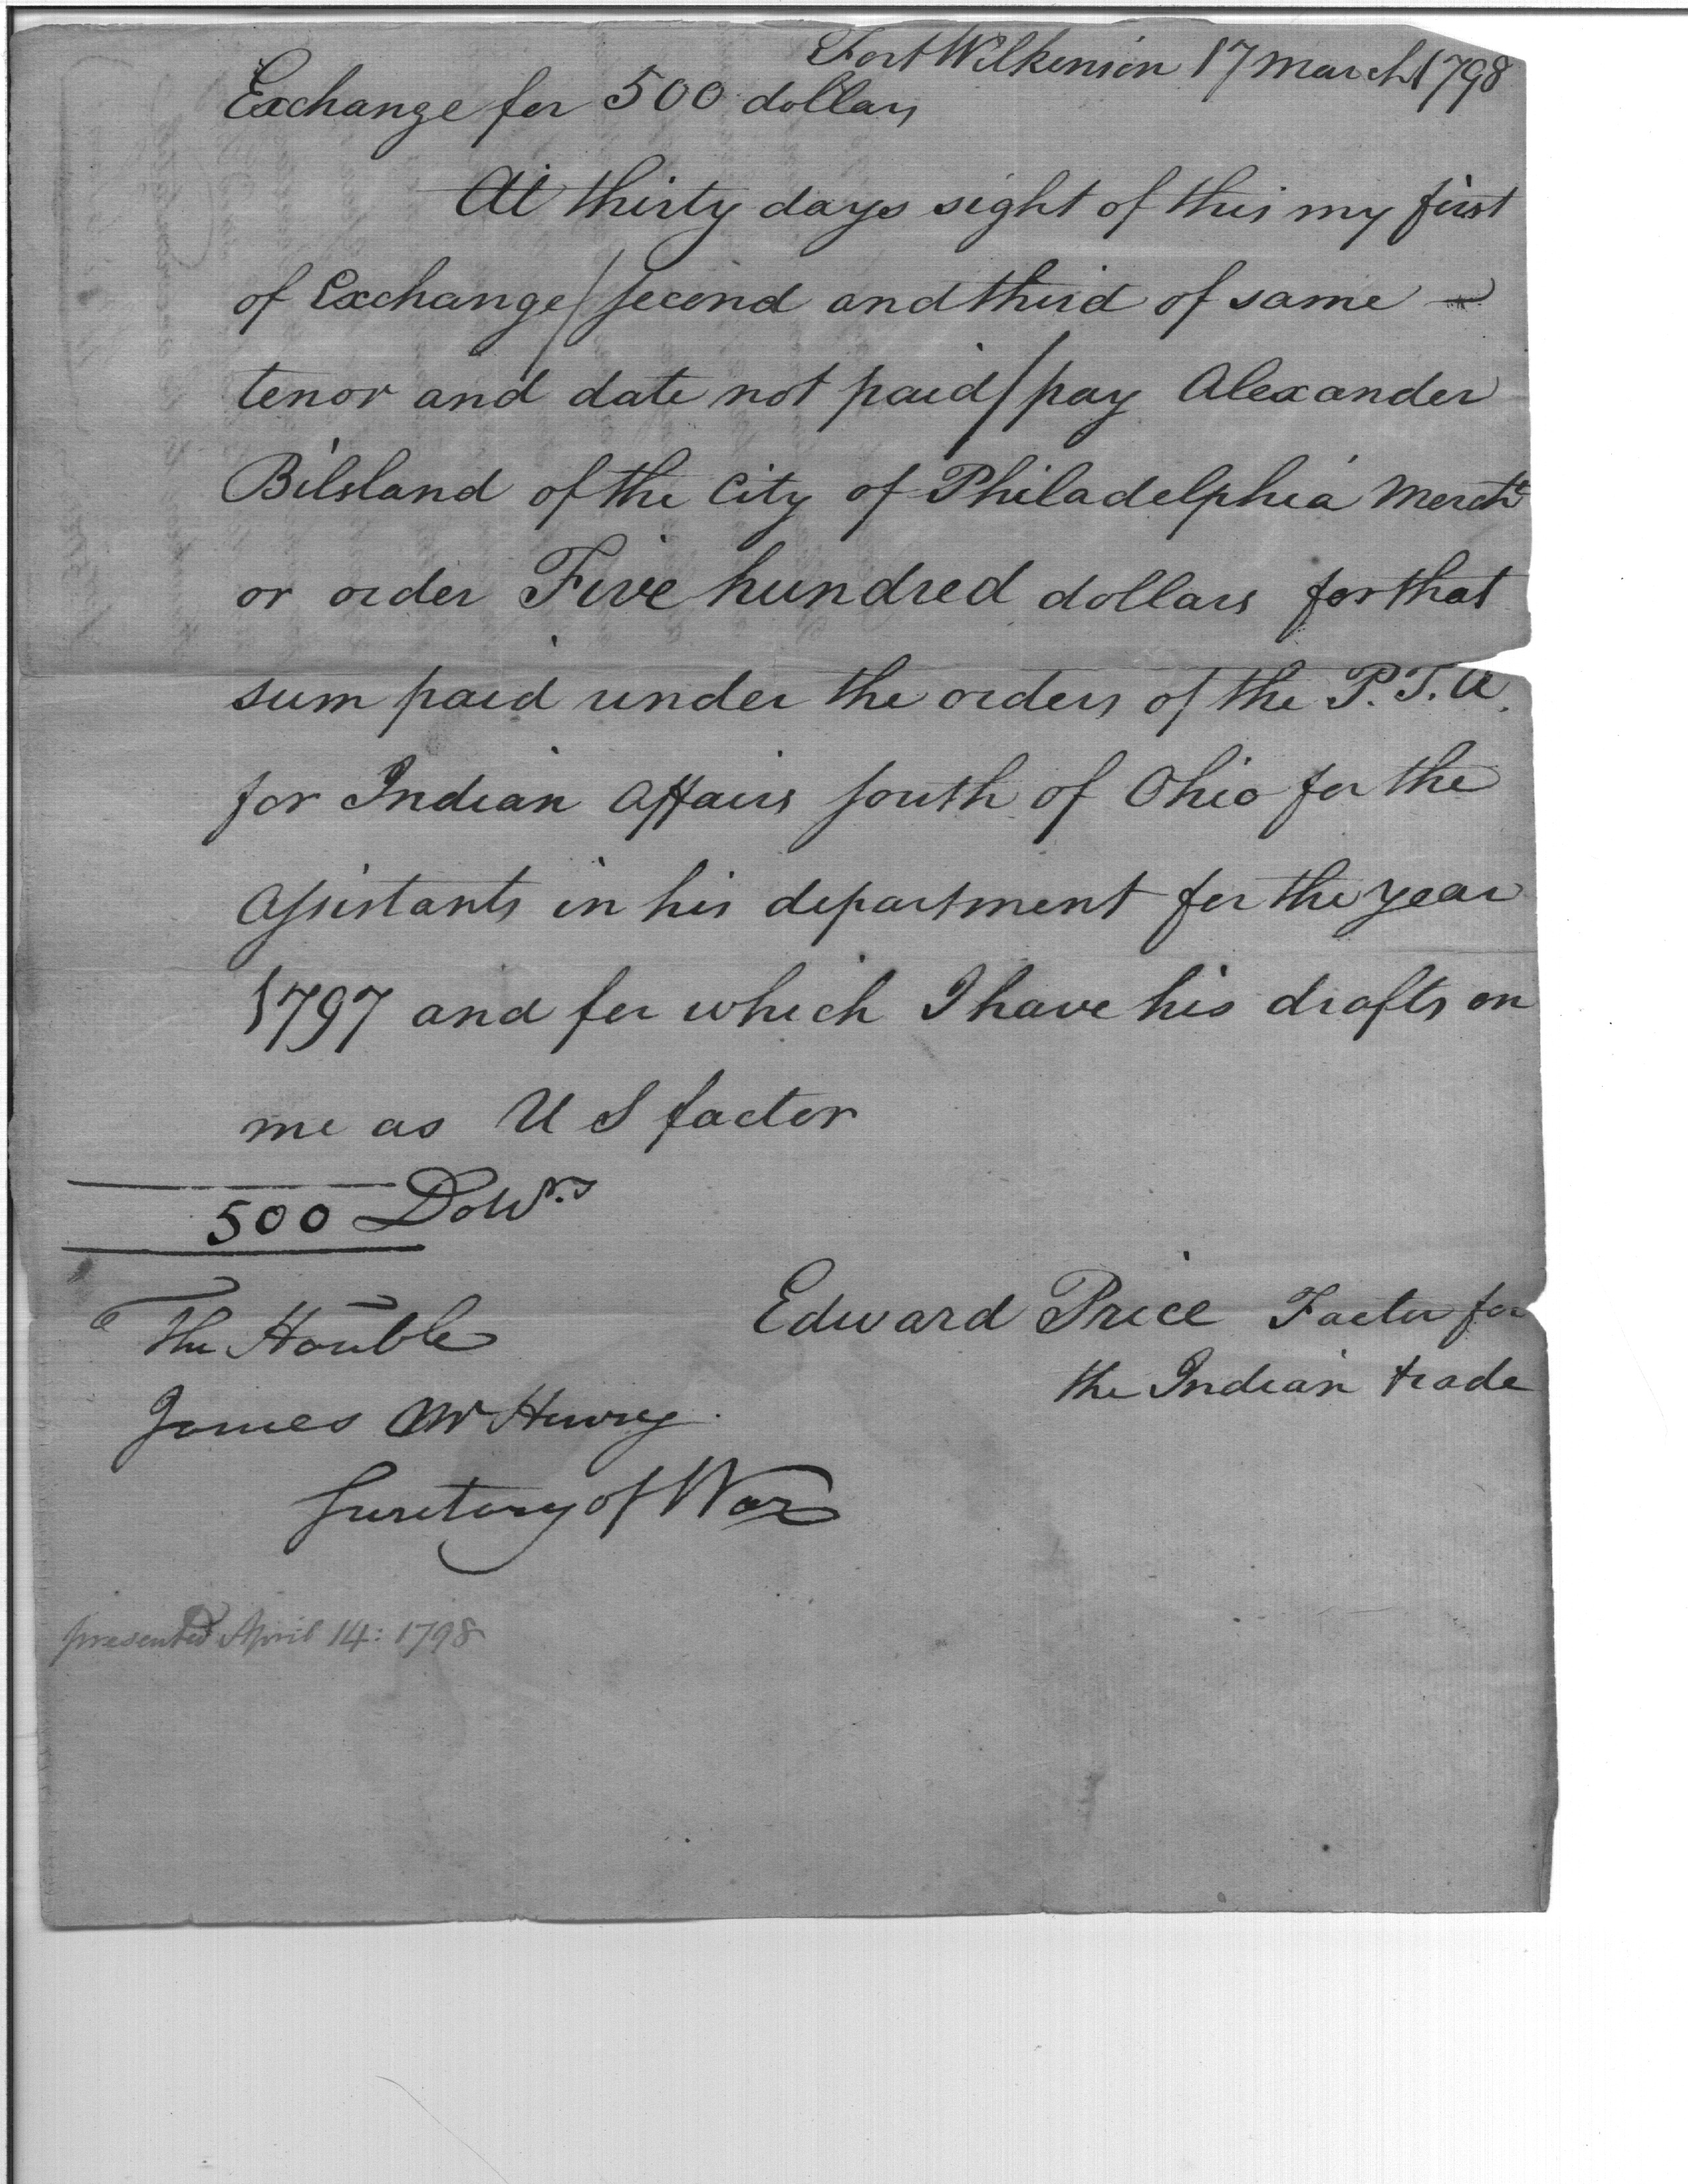 Fort Wilkinson 17 March 1798
Exchange for 500 dollars
At thirty days sight of this my first
of Exchange / second and third of same
tenor and date not paid / pay Alexander
Bilsland of the City of Philadelphia Mercht
or order Five hundred dollars for that
sum paid under the orders of the P. T. A.
for Indian Affairs south of Ohio for the
Assistants in his department for the year
1797 and for which I have his drafts on
me as U S factor
500 Dollrs
The Honble
Edward Price Factor for
the Indian trade
James McHenry.
Secretary of War
presented April 14: 1798